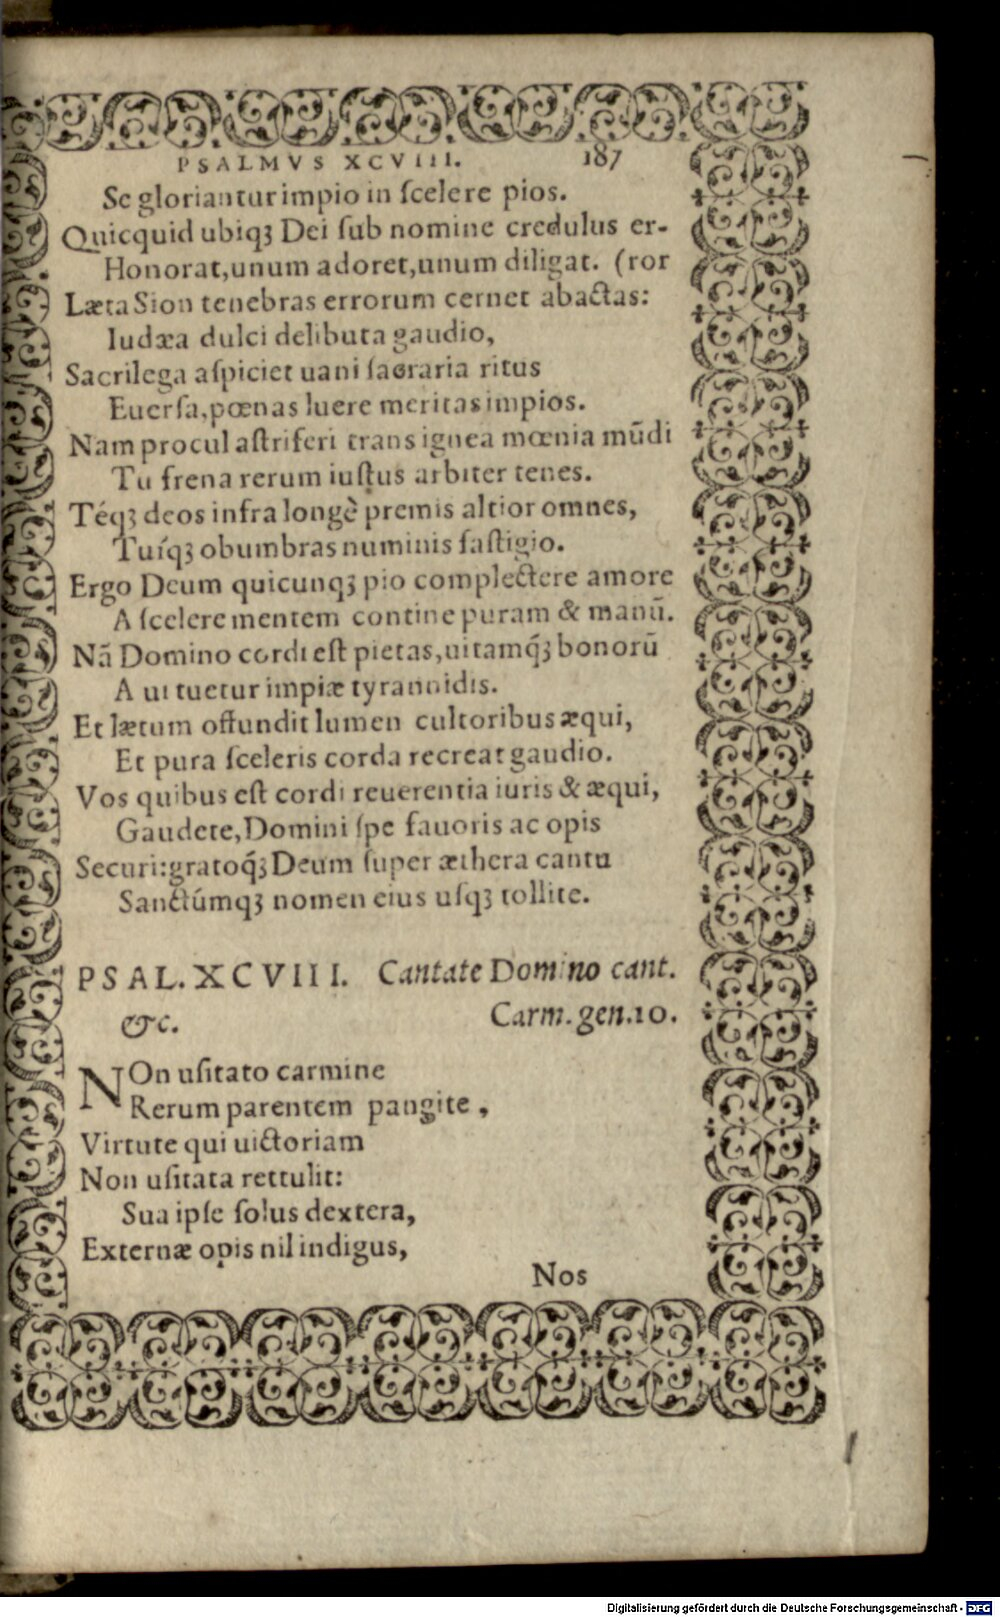 PSALMVS XCVIII. 187
Se gloriantur impio in ſcelere pios.
Quicquid ubiqꝫ Dei ſub nomine credulus er-
Honorat,unum adoret,unum diligat. (ror
Læta Sion tenebras errorum cernet abactas:
Iudæa dulci delibuta gaudio,
Sacrilega aſpiciet uani ſacraria ritus
Euerſa,pœnas luere meritas impios.
Nam procul aſtriferi trans ignea mœnia mūdi
Tu frena rerum iuſtus arbiter tenes.
Téqꝫ deos infra longè premis altior omnes,
Tuíqꝫ obumbras numinis faſtigio.
Ergo Deum quicunqꝫ pio complectere amore
A ſcelere mentem contine puram & manū.
Nā Domino cordi eſt pietas,uitamq́ꝫ bonorū
A ui tuetur impiæ tyrannidis.
Et lætum offundit lumen cultoribus æqui,
Et pura ſceleris corda recreat gaudio.
Vos quibus eſt cordi reuerentia iuris & æqui,
Gaudete,Domini ſpe fauoris ac opis
Securi:gratoq́ꝫ Deum ſuper æthera cantu
Sanctúmqꝫ nomen eius uſqꝫ tollite.
PSAL.XCVIII. Cantate Domino cant.
&c. Carm.gen.10.
NOn uſitato carmine
Rerum parentem pangite,
Virtute qui uictoriam
Non uſitata rettulit:
Sua ipſe ſolus dextera,
Externæ opis nil indigus,
Nos
Digitalisierung gefördert durch die Deutsche Forschungsgemeinschaft - DFG